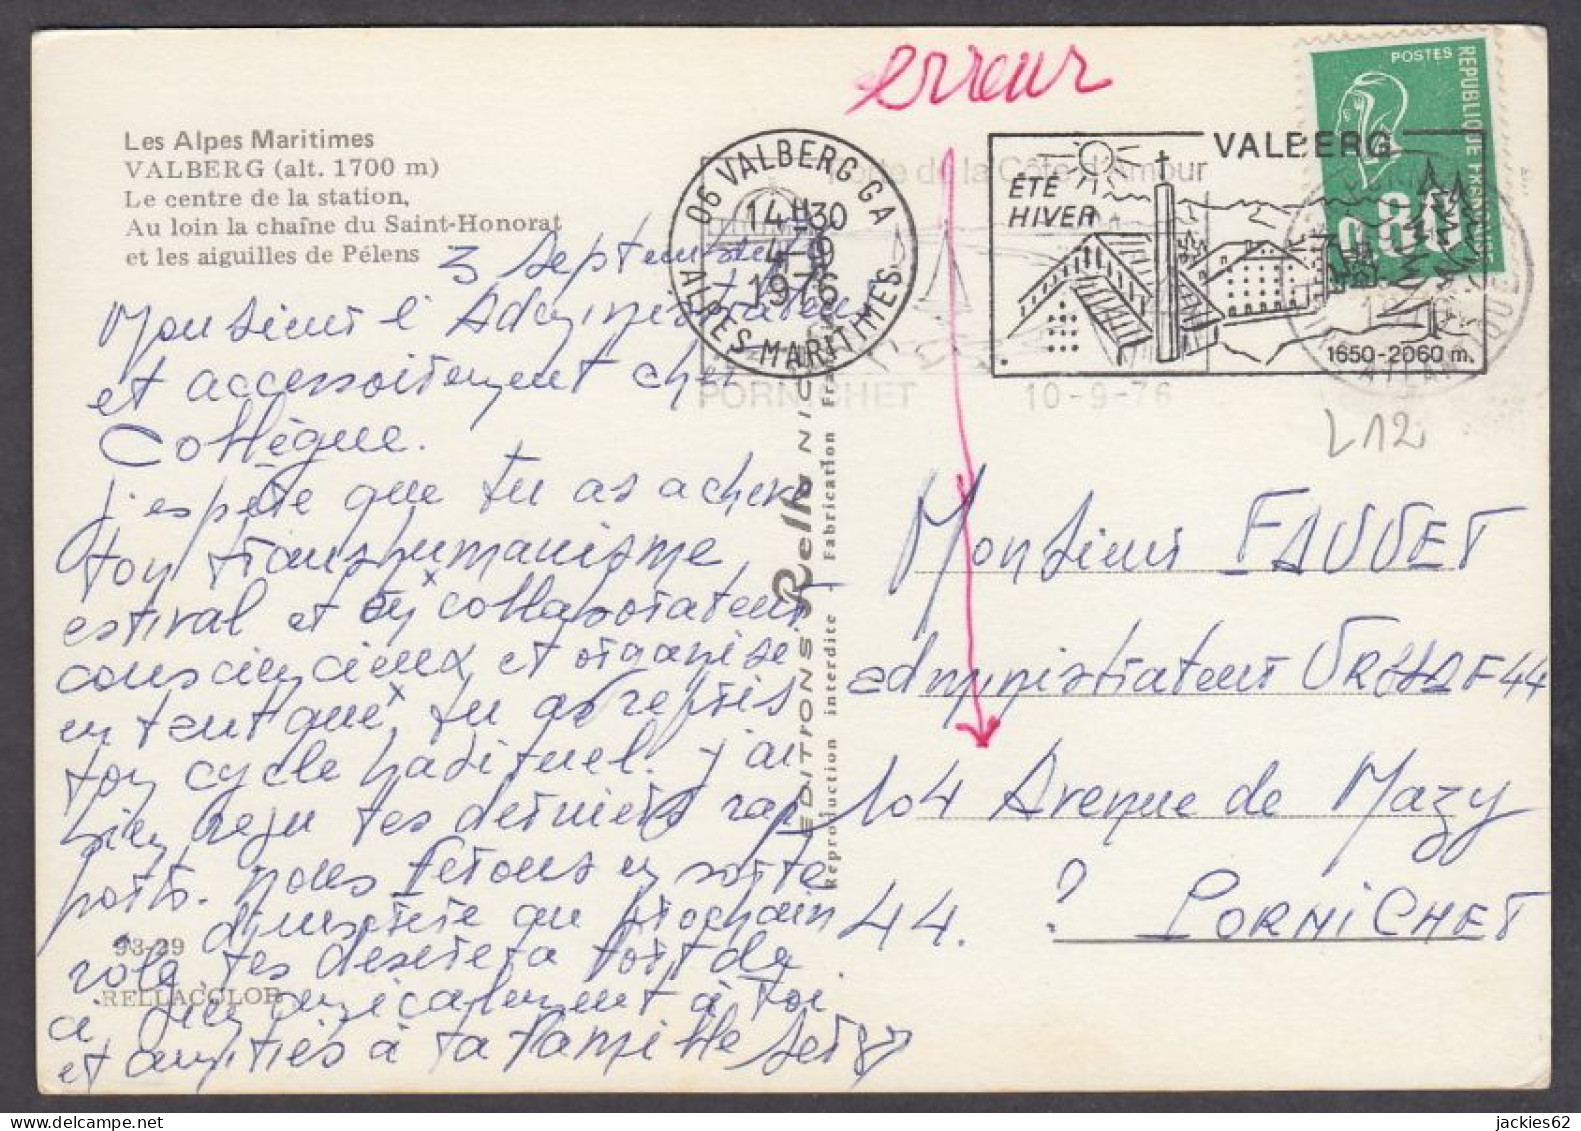 erreur
Les Alpes Maritimes
VALBERG (alt. 1700 m)
Le centre de la station,
Au loin la chaîne du Saint-Honorat
et les aiguilles de Pélens
3 Septembre
Monsieur l'Administrateur
et accessoirement cher
Collègue.
J'espère que tu as achevé
ton transhumanisme
estival et qu'en collaborateur
consciencieux et organisé
en tant que, tu as repris
ton cycle habituel. J'ai
bien reçu tes derniers rap
ports. nous ferons en sorte
d'inscrire au prochain
tes
à toi
et amitiés à ta famille Serge
93-29
RELLACOLOR
06 VALBERG GA
14H30
4-9
1976
ALPES MARITIMES
de la Côte d'Amour
PORNICHET
10-9-76
VALBERG
ÉTÉ
HIVER
1650-2060 m.
POSTES
REPUBLIQUE FRANÇAISE
0.80
LOIRE ATLANTIQUE
L12
EDITIONS Rella NICE
Reproduction interdite - Fabrication Française
Monsieur FAUVET
administrateur URSSAF 44
104 Avenue de Mazy
44. ? PORNICHET
jackies62